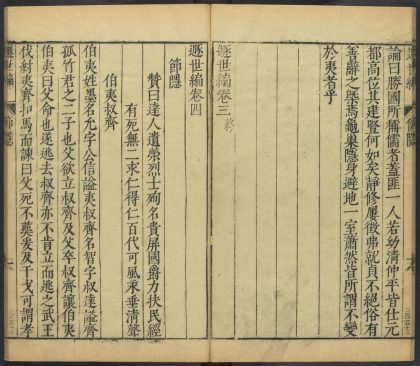 論曰勝國所稱儒者蓋匪一人若幼清仲平皆仕元
都高位其建豎何如矣靜修屢徵弗就貞不絕俗有
善辭之槩焉龜巢隱身避地一室蕭然皆所謂不變
於夷者乎
遯世編卷三終
遯世編卷四
節隱
贊曰達人遺榮烈士殉名貴屏國爵力扶民經
有死無二求仁得仁百代可風永垂清聲
伯夷叔齊
伯夷姓墨名允字公信謚夷叔齊名智字叔達謚齊
孤竹君之二子也父欲立叔齊及父卒叔齊讓伯夷
伯夷曰父命也遂逃去叔齊亦不肯立而逃之武王
伐紂夷齊扣馬而諫曰父死不葬爰及干戈可謂孝